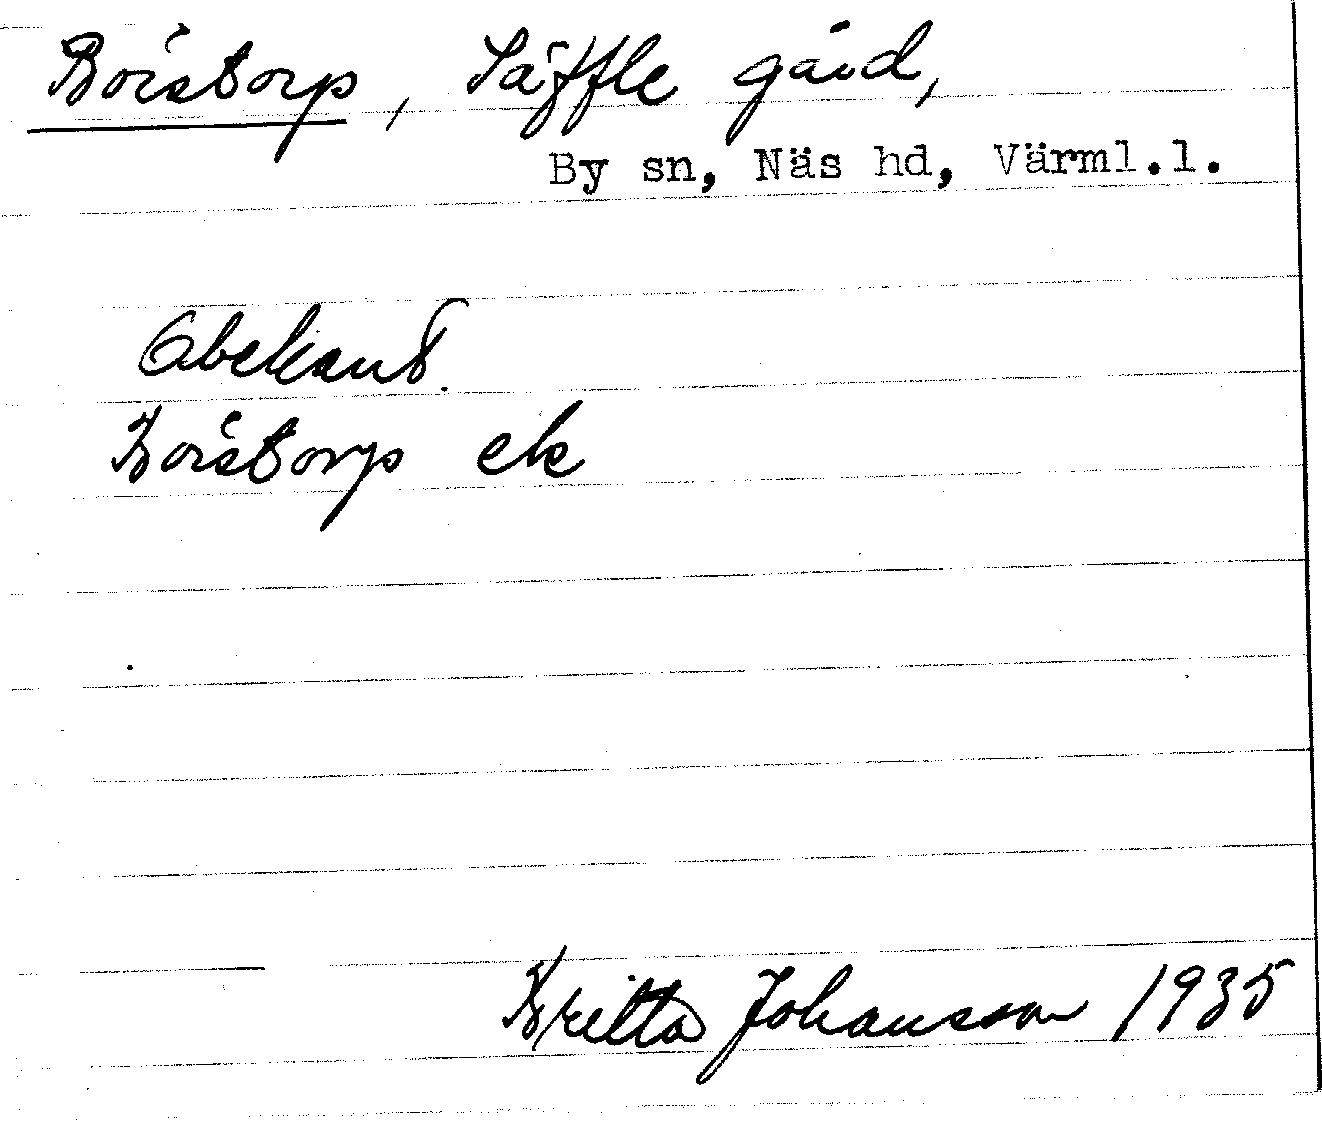 Borstorp, Säffle gård,
By sn, Näs hd, Värml.l.
Obekant.
Borstorp ek
Britta Johansson 1935